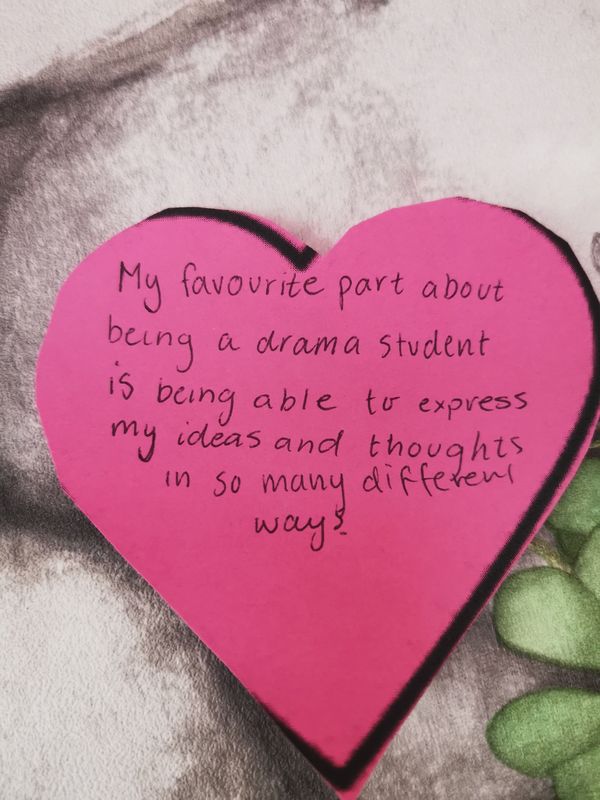 My favourite part about
being a drama student
is being able to express
my ideas and thoughts
in so many different
ways.